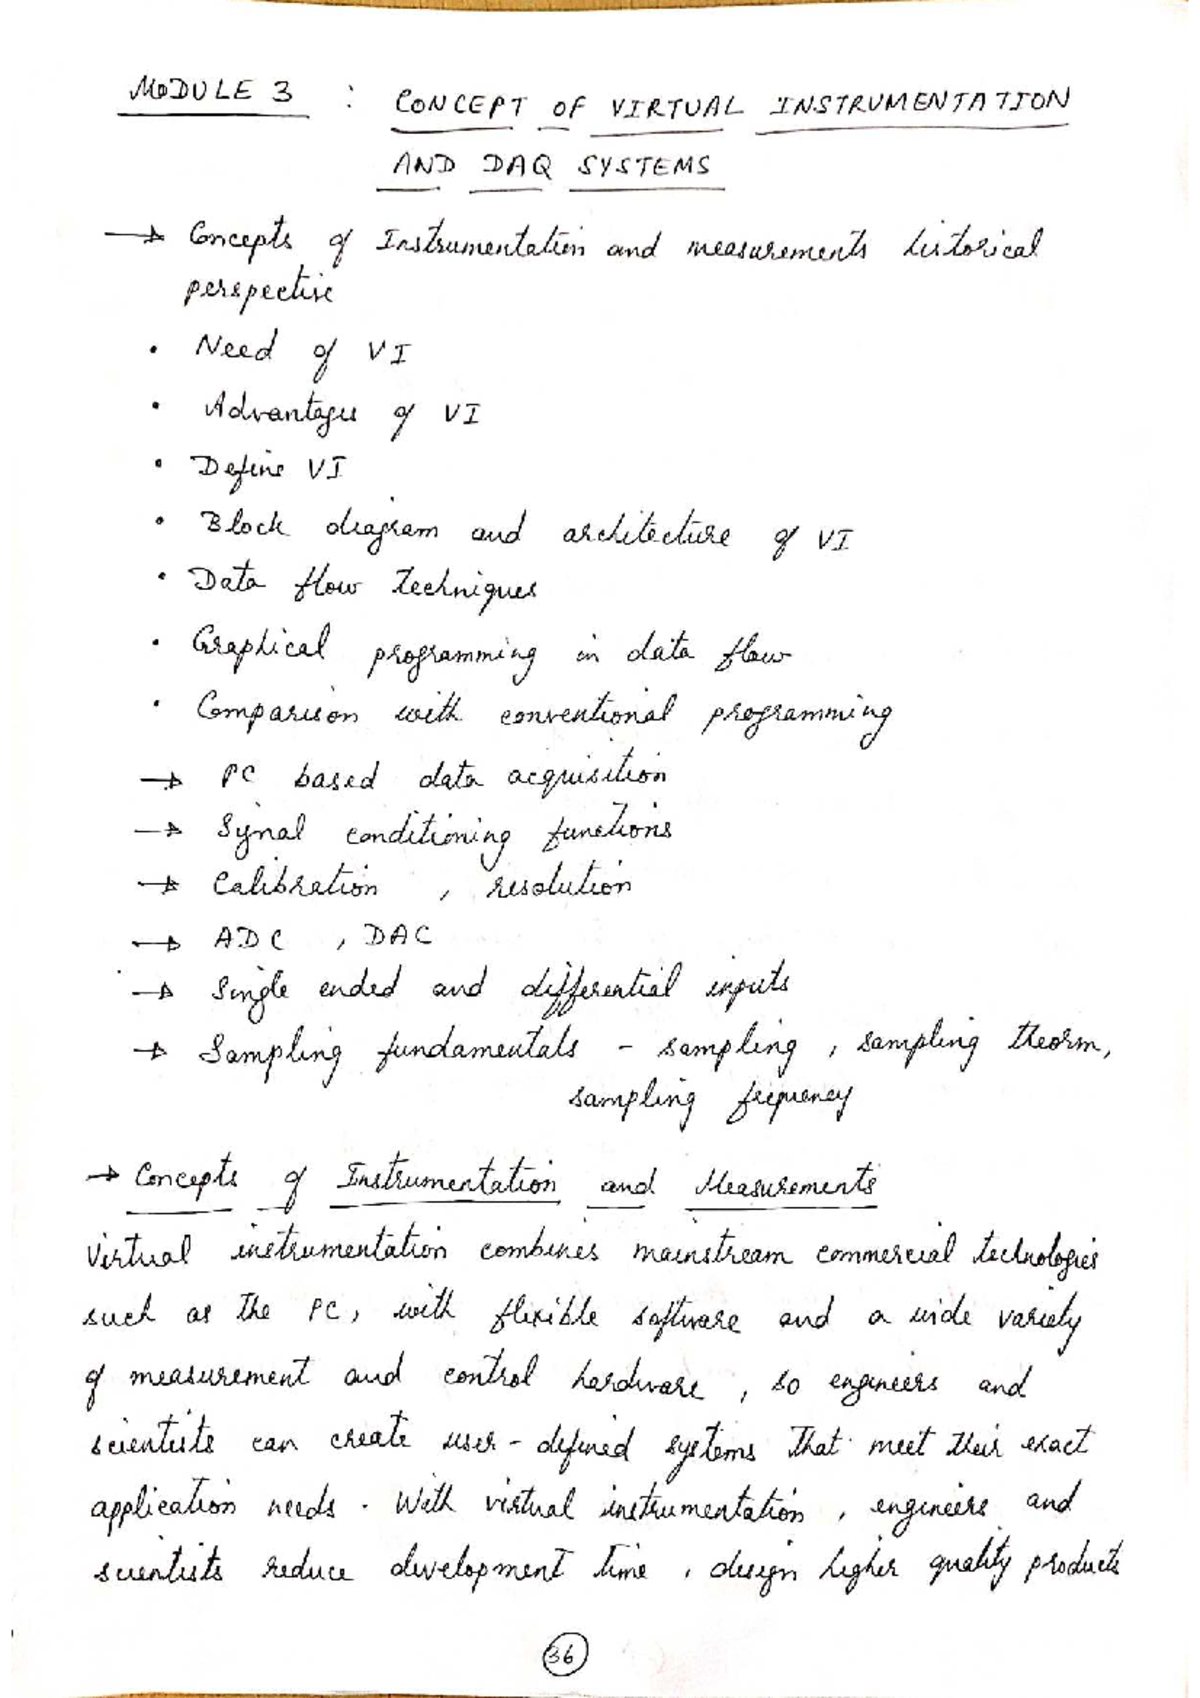 MODULE 3 : CONCEPT OF VIRTUAL INSTRUMENTATION
AND DAQ SYSTEMS
→ Concepts of Instrumentation and measurements historical
perspective
• Need of VI
• Advantages of VI
• Define VI
• Block diagram and architecture of VI
• Data flow techniques
• Graphical programming in data flow
• Comparison with conventional programming
→ PC based data acquisition
→ Signal conditioning functions
→ Calibration , resolution
→ ADC , DAC
→ Single ended and differential inputs
→ Sampling fundamentals - sampling , sampling theorm,
sampling frequency
→ Concepts of Instrumentation and Measurements
Virtual instrumentation combines mainstream commercial technologies
such as the PC, with flexible software and a wide variety
of measurement and control hardware , so engineers and
scientists can create user - defined systems that meet their exact
application needs . With virtual instrumentation , engineers and
scientists reduce development time , design higher quality products
36